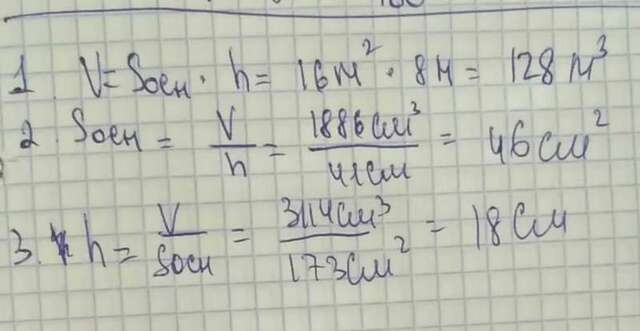 1. V = Sосн · h = 16 м² · 8 м = 128 м³
2. Sосн = V/h = 1886 см³/41 см = 46 см²
3. h = V/Sосн = 3114 см³/173 см² = 18 см